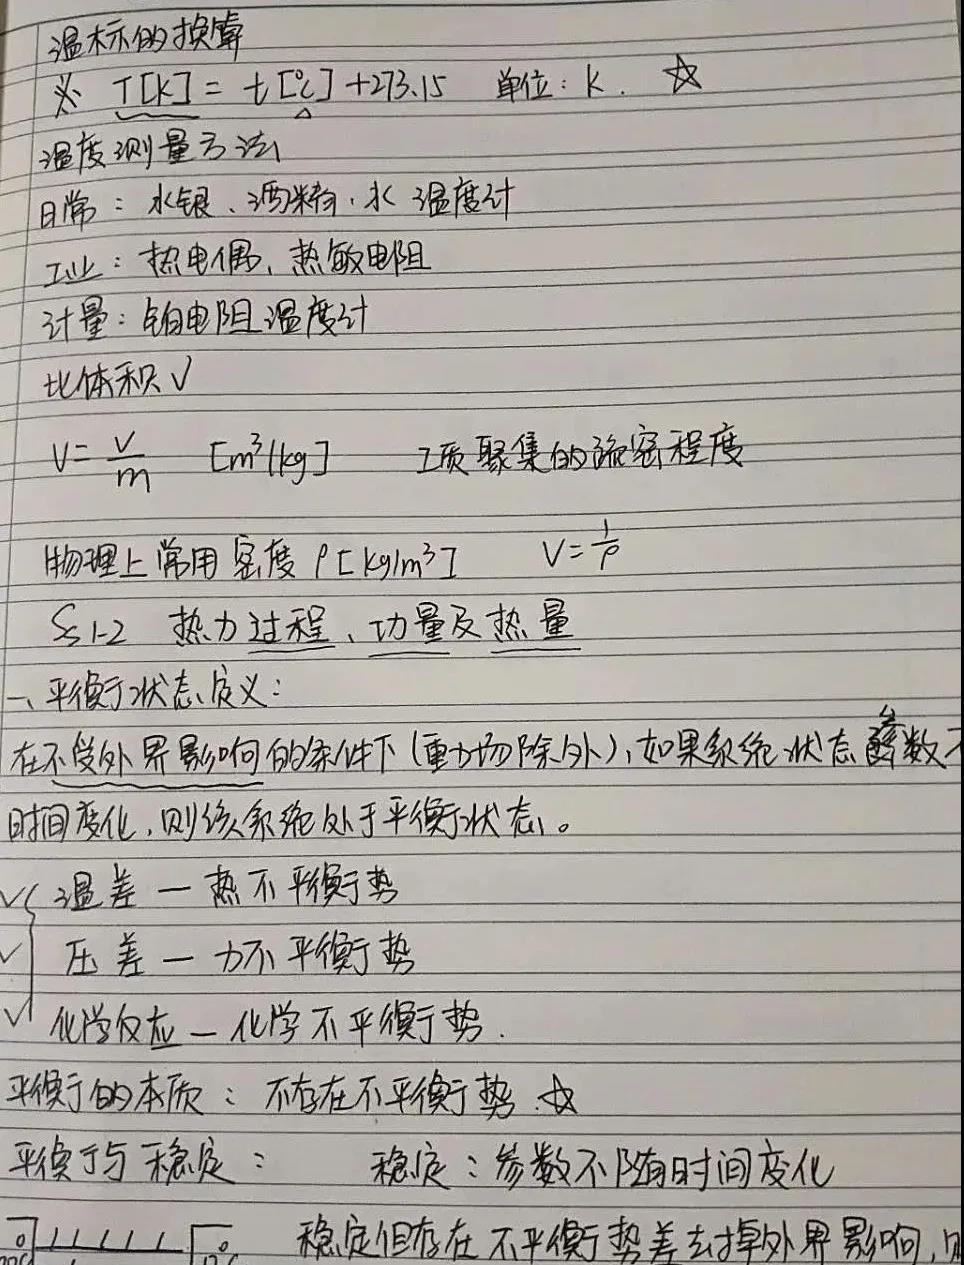 温标的换算
※ T[K] = t[℃] +273.15 单位: K. ☆
温度测量方法
日常: 水银、酒精、水 温度计
工业: 热电偶、热敏电阻
计量: 铂电阻温度计
比体积 V
V = V/m [m³/kg] 工质聚集的疏密程度
物理上常用密度 ρ[kg/m³] V = 1/ρ
§1-2 热力过程、功量及热量
一、平衡状态定义:
在不受外界影响的条件下(重力场除外), 如果系统状态参数不
时间变化, 则该系统处于平衡状态。
温差 — 热不平衡势
压差 — 力不平衡势
化学反应 — 化学不平衡势.
平衡的本质: 不存在不平衡势. ☆
平衡与稳定: 稳定: 参数不随时间变化
稳定但存在不平衡势差去掉外界影响,